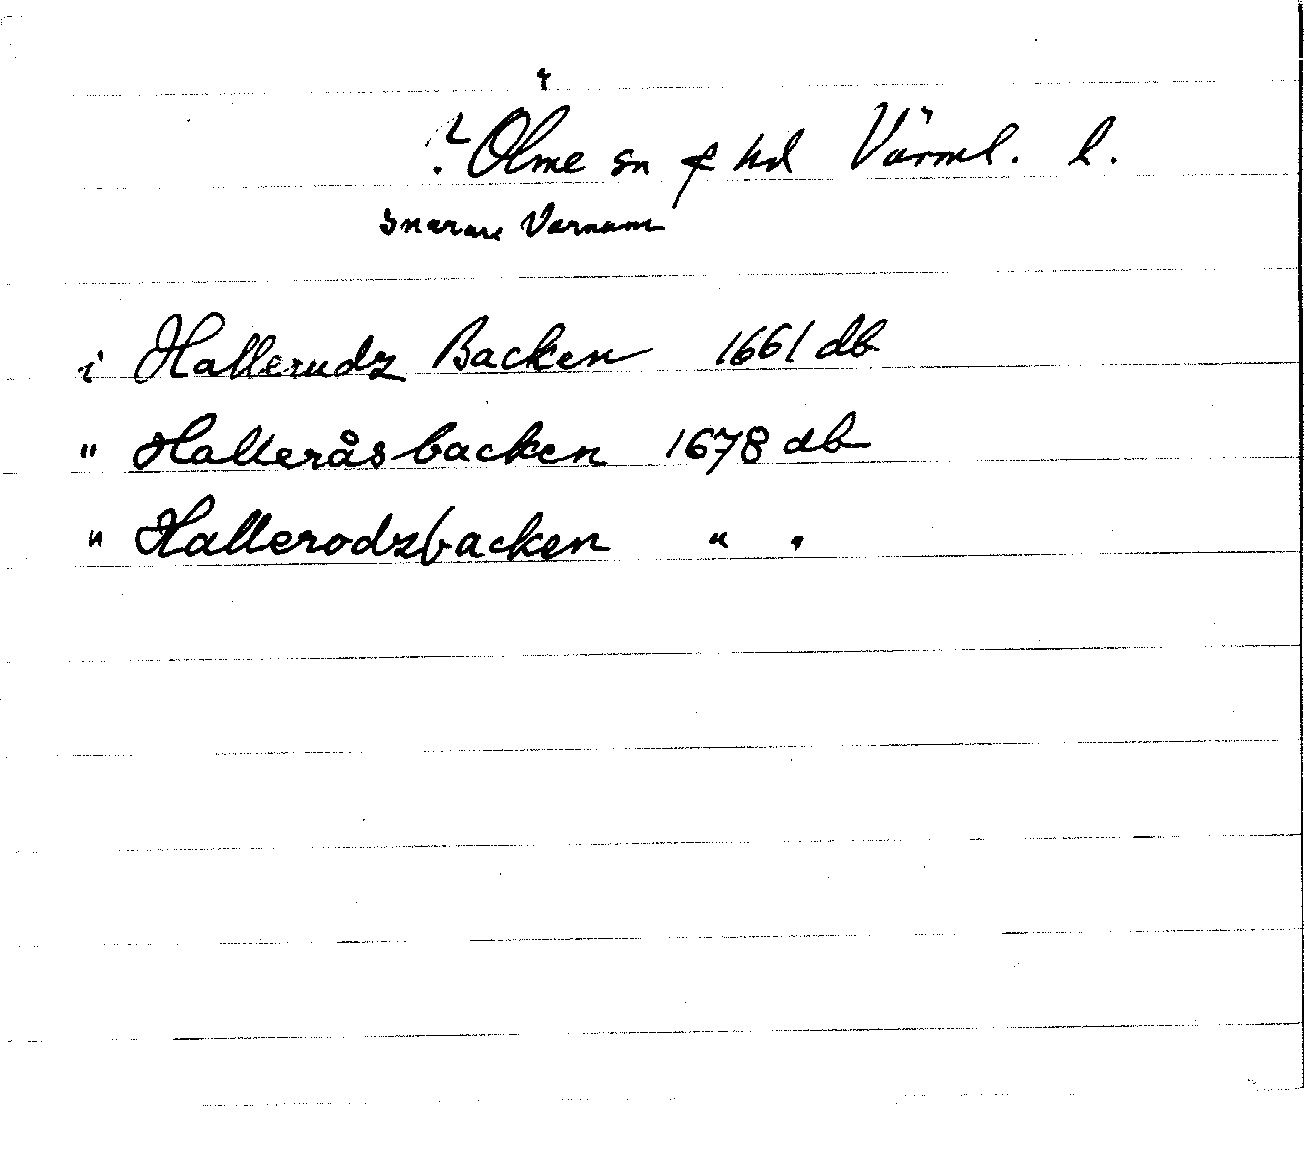 ? Ölme sn & hd Värml. l.
snarare Varnum
i Hallerudz Backen 1661 db
" Halleråsbacken 1678 db
" Hallerodzbacken " "